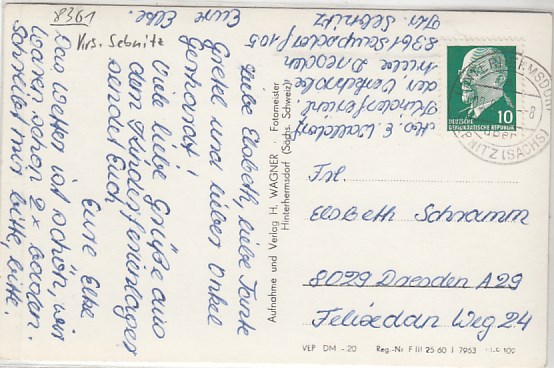 8361
Krs. Sebnitz
Liebe Elsbeth, liebe Tante
Gretel und lieber Onkel
Gerhardt!
Viele liebe Grüße aus
dem Kinderferienlager
sendet Euch
Eure Elke
Das Wetter ist schön, wir
waren schon 2x baden.
Schreibt mir bitte, bitte.
Eure Elke.
Abs. E. Walldorf
Kinderferienl.
der Verkehrsbe
triebe Dresden
8361 Saupsdorf 105
Kr. Sebnitz
Aufnahme und Verlag H. WAGNER · Fotomeister
Hinterhermsdorf (Sächs. Schweiz)
10
DEUTSCHE
DEMOKRATISCHE REPUBLIK
NITZ (SACHS)
Frl.
Elsbeth Schramm
8029 Dresden A29
Felixdan Weg 24
VEP DM -20 Reg.-Nr F III 25 60 J 7953